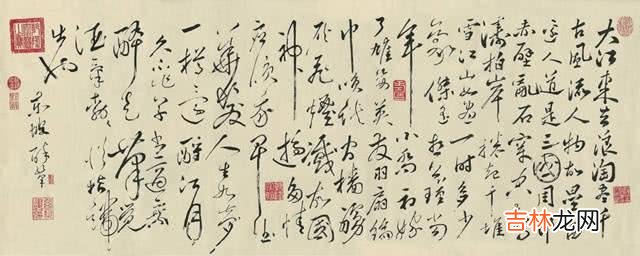 大江東去浪淘盡千
古風流人物故壘西
邊人道是三國周郎
赤壁亂石穿空驚
濤拍岸捲起千堆
雪江山如畫一時多少
豪傑遙想公瑾當
年小喬初嫁
了雄姿英發羽扇綸
巾談笑間檣艣
灰飛煙滅故國
神遊多情
應笑我早生
華髮人生如夢
一樽還酹江月
久不作草書適乘
醉走筆覺
酒氣勃勃從指端
出也
東坡醉筆
吉林龙网